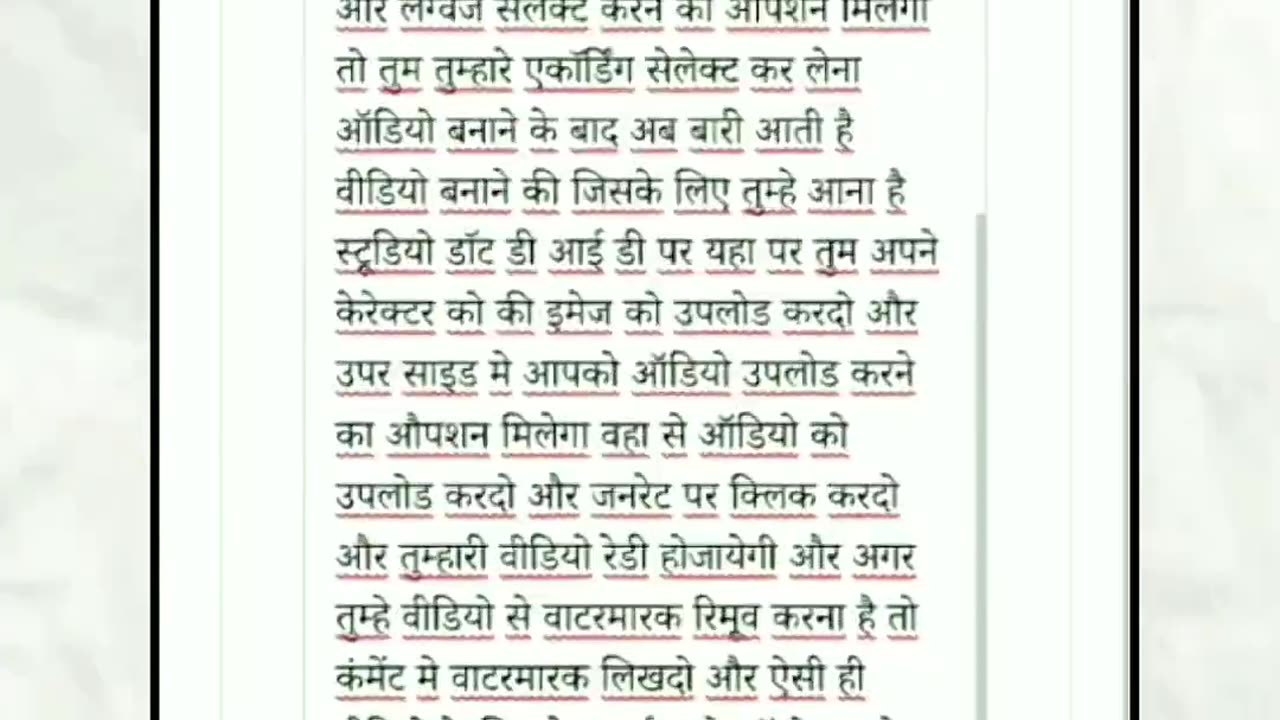 और लेंग्वेज सेलेक्ट करने का ऑपशन मिलेगा
तो तुम तुम्हारे एकॉर्डिंग सेलेक्ट कर लेना
ऑडियो बनाने के बाद अब बारी आती है
वीडियो बनाने की जिसके लिए तुम्हे आना है
स्टूडियो डॉट डी आई डी पर यहा पर तुम अपने
केरेक्टर को की इमेज को उपलोड करदो और
उपर साइड मे आपको ऑडियो उपलोड करने
का औपशन मिलेगा वहा से ऑडियो को
उपलोड करदो और जनरेट पर क्लिक करदो
और तुम्हारी वीडियो रेडी होजायेगी और अगर
तुम्हे वीडियो से वाटरमारक रिमूव करना है तो
कंमेंट मे वाटरमारक लिखदो और ऐसी ही